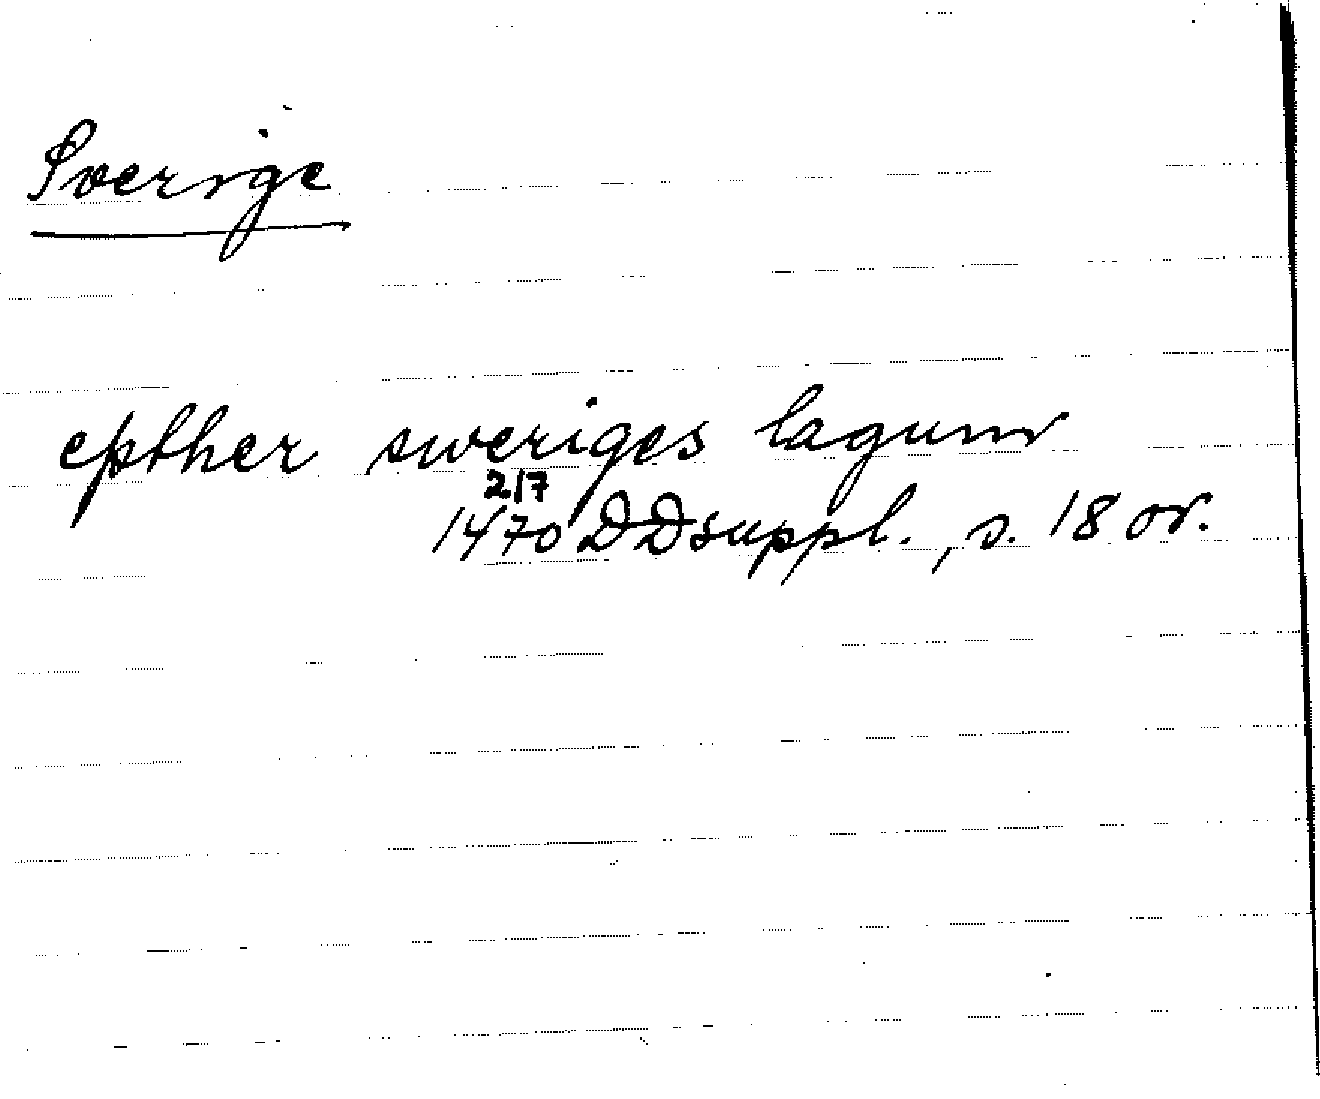 Sverige
epther sweriges lagum
2/7
1470 DDsuppl., s. 18 or.